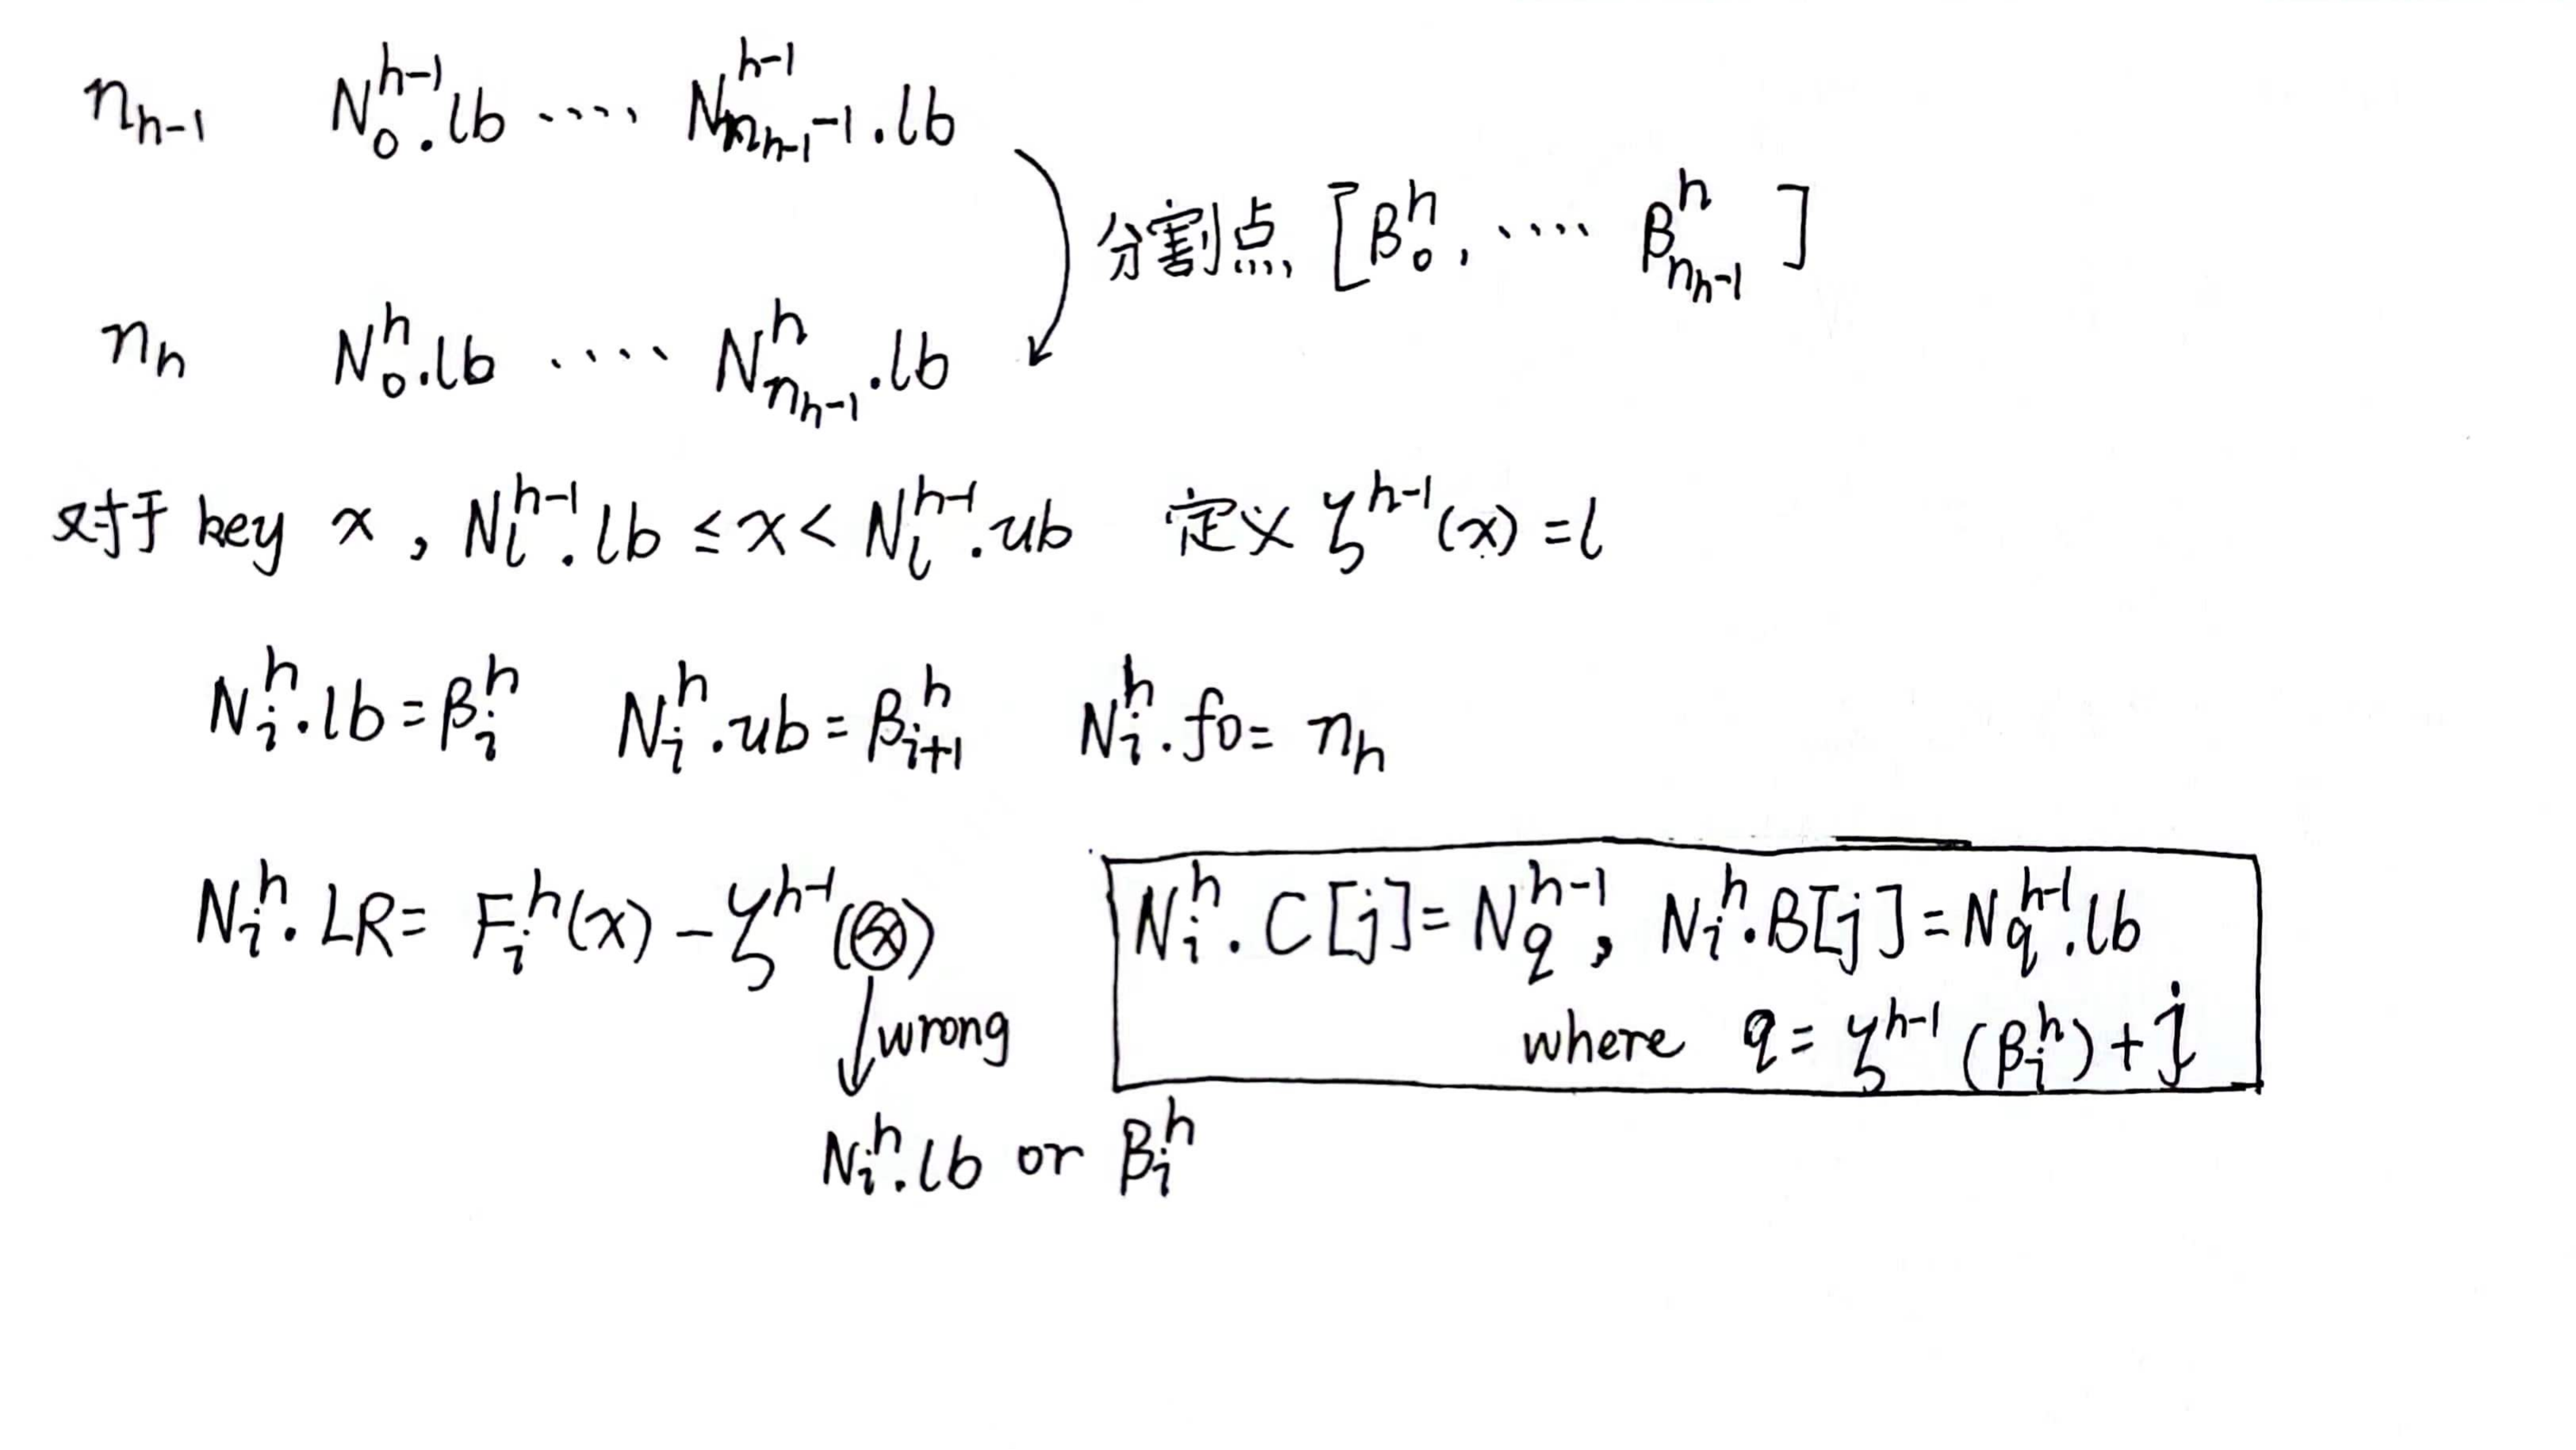 n_{h-1} N_0^{h-1}.lb ···· N_{n_{h-1}-1}^{h-1}.lb
分割点 [β_0^h, ···· β_{n_{h-1}}^h]
n_h N_0^h.lb ···· N_{n_{h-1}}^h.lb
对于 key x, N_l^{h-1}.lb ≤ x < N_l^{h-1}.ub 定义 ζ^{h-1}(x) = l
N_i^h.lb = β_i^h N_i^h.ub = β_{i+1}^h N_i^h.fo = n_h
N_i^h.LR = F_i^h(x) - ζ^{h-1}(x)
N_i^h.C[j] = N_q^{h-1}, N_i^h.B[j] = N_q^{h-1}.lb
where q = ζ^{h-1}(β_i^h) + j
wrong
N_i^h.lb or β_i^h